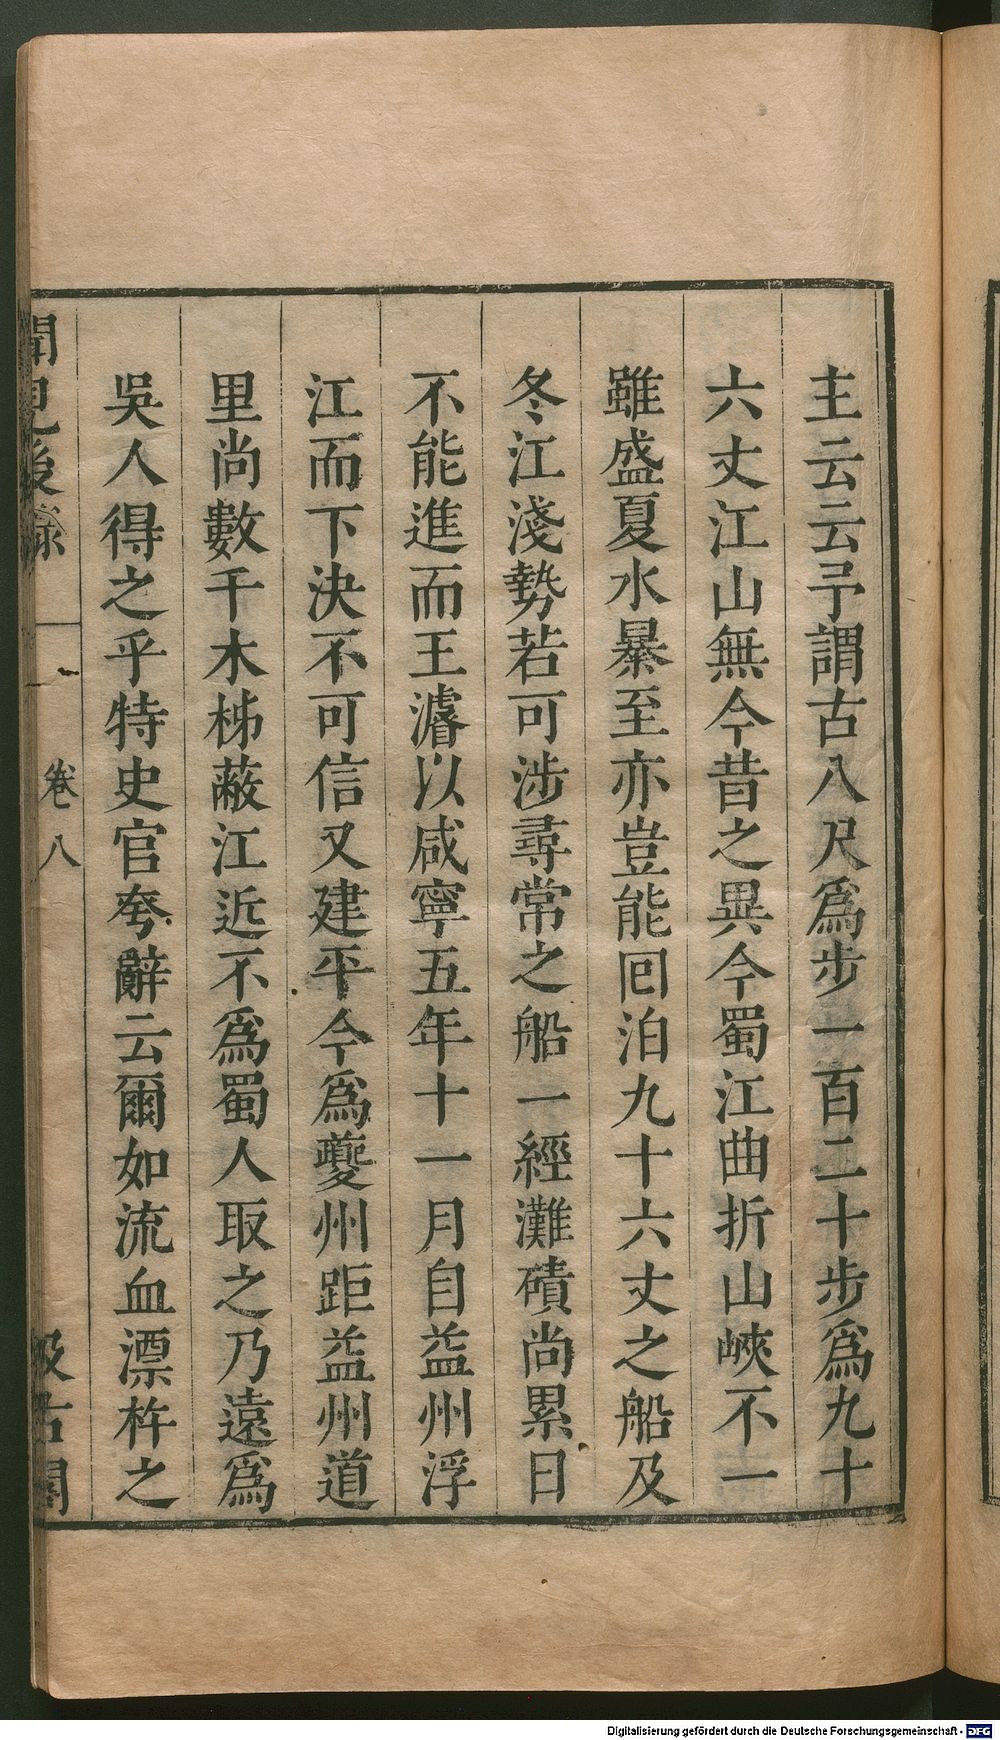 主云云予謂古八尺爲步一百二十步爲九十
六丈江山無今昔之異今蜀江曲折山峽不一
雖盛夏水暴至亦豈能囘泊九十六丈之船及
冬江淺勢若可涉尋常之船一經灘磧尚累日
不能進而王濬以咸寧五年十一月自益州浮
江而下決不可信又建平今爲夔州距益州道
里尚數千木柹蔽江近不爲蜀人取之乃遠爲
吳人得之乎特史官夸辭云爾如流血漂杵之
聞見後錄 卷八 汲古閣
Digitalisierung gefördert durch die Deutsche Forschungsgemeinschaft - DFG